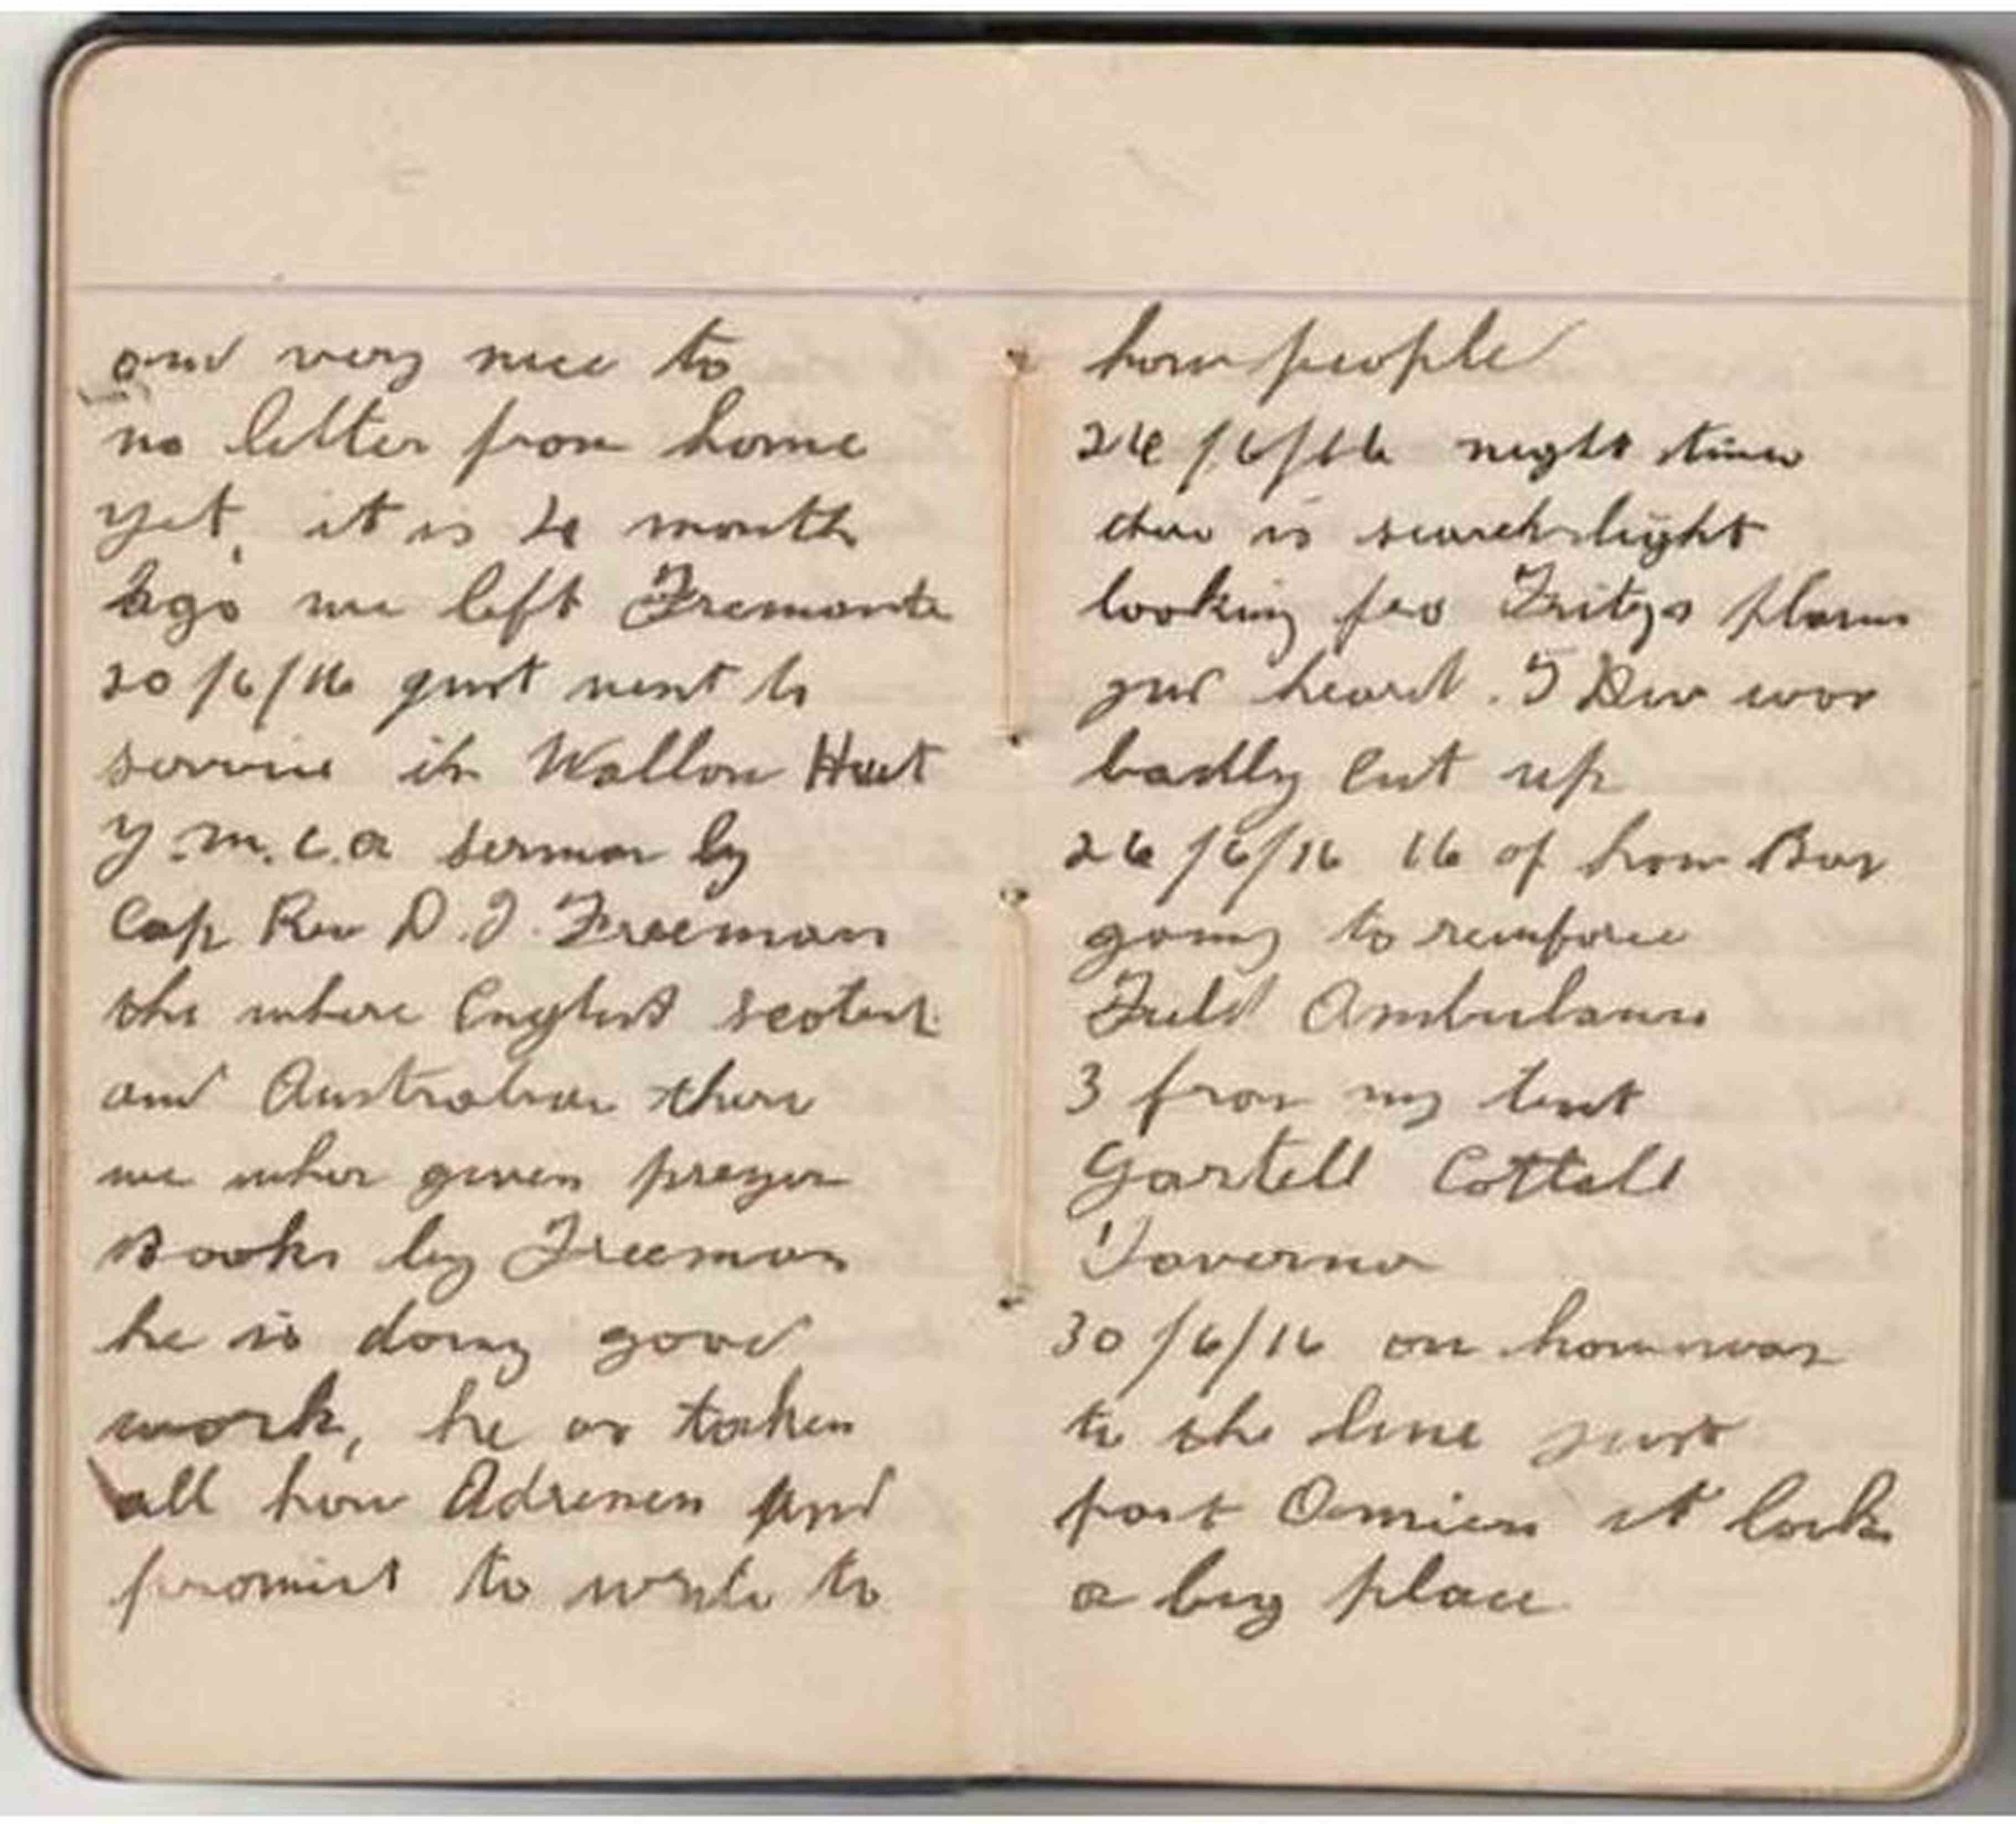 and very nice to
no letter from home
yet, it is 4 month
ago we left Fremante
20/6/16 just went to
service in Wallon Hut
Y.M.C.A sermon by
Cap Rev D.J. Freeman
the where English scotish
and Australian there
we wher given prayer
Books by Freeman
he is doing good
work, he as taken
all how Adresses and
promist to write to
how people
24/6/16 night time
ther is search light
looking for Fritzs plans
jus heard. 5 Div was
badly cut up
26/6/16 16 of how Boys
going to reinforce
Field Ambulance
3 from my tent
Gartell Cottell
Taverner
30/6/16 on how way
to the line just
past Amiens it looks
a big place